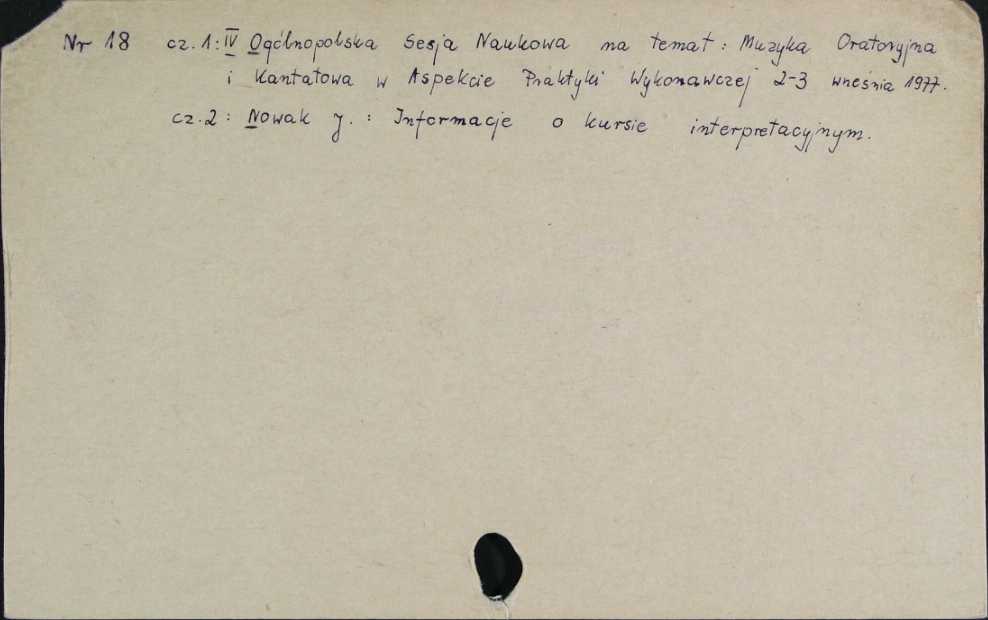 Nr 18 cz. 1: IV Ogólnopolska Sesja Naukowa na temat: Muzyka Oratoryjna
i Kantatowa w Aspekcie Praktyki Wykonawczej 2-3 wneśnia 1977.
cz. 2: Nowak J. : Informacje o kursie interpretacyjnym.